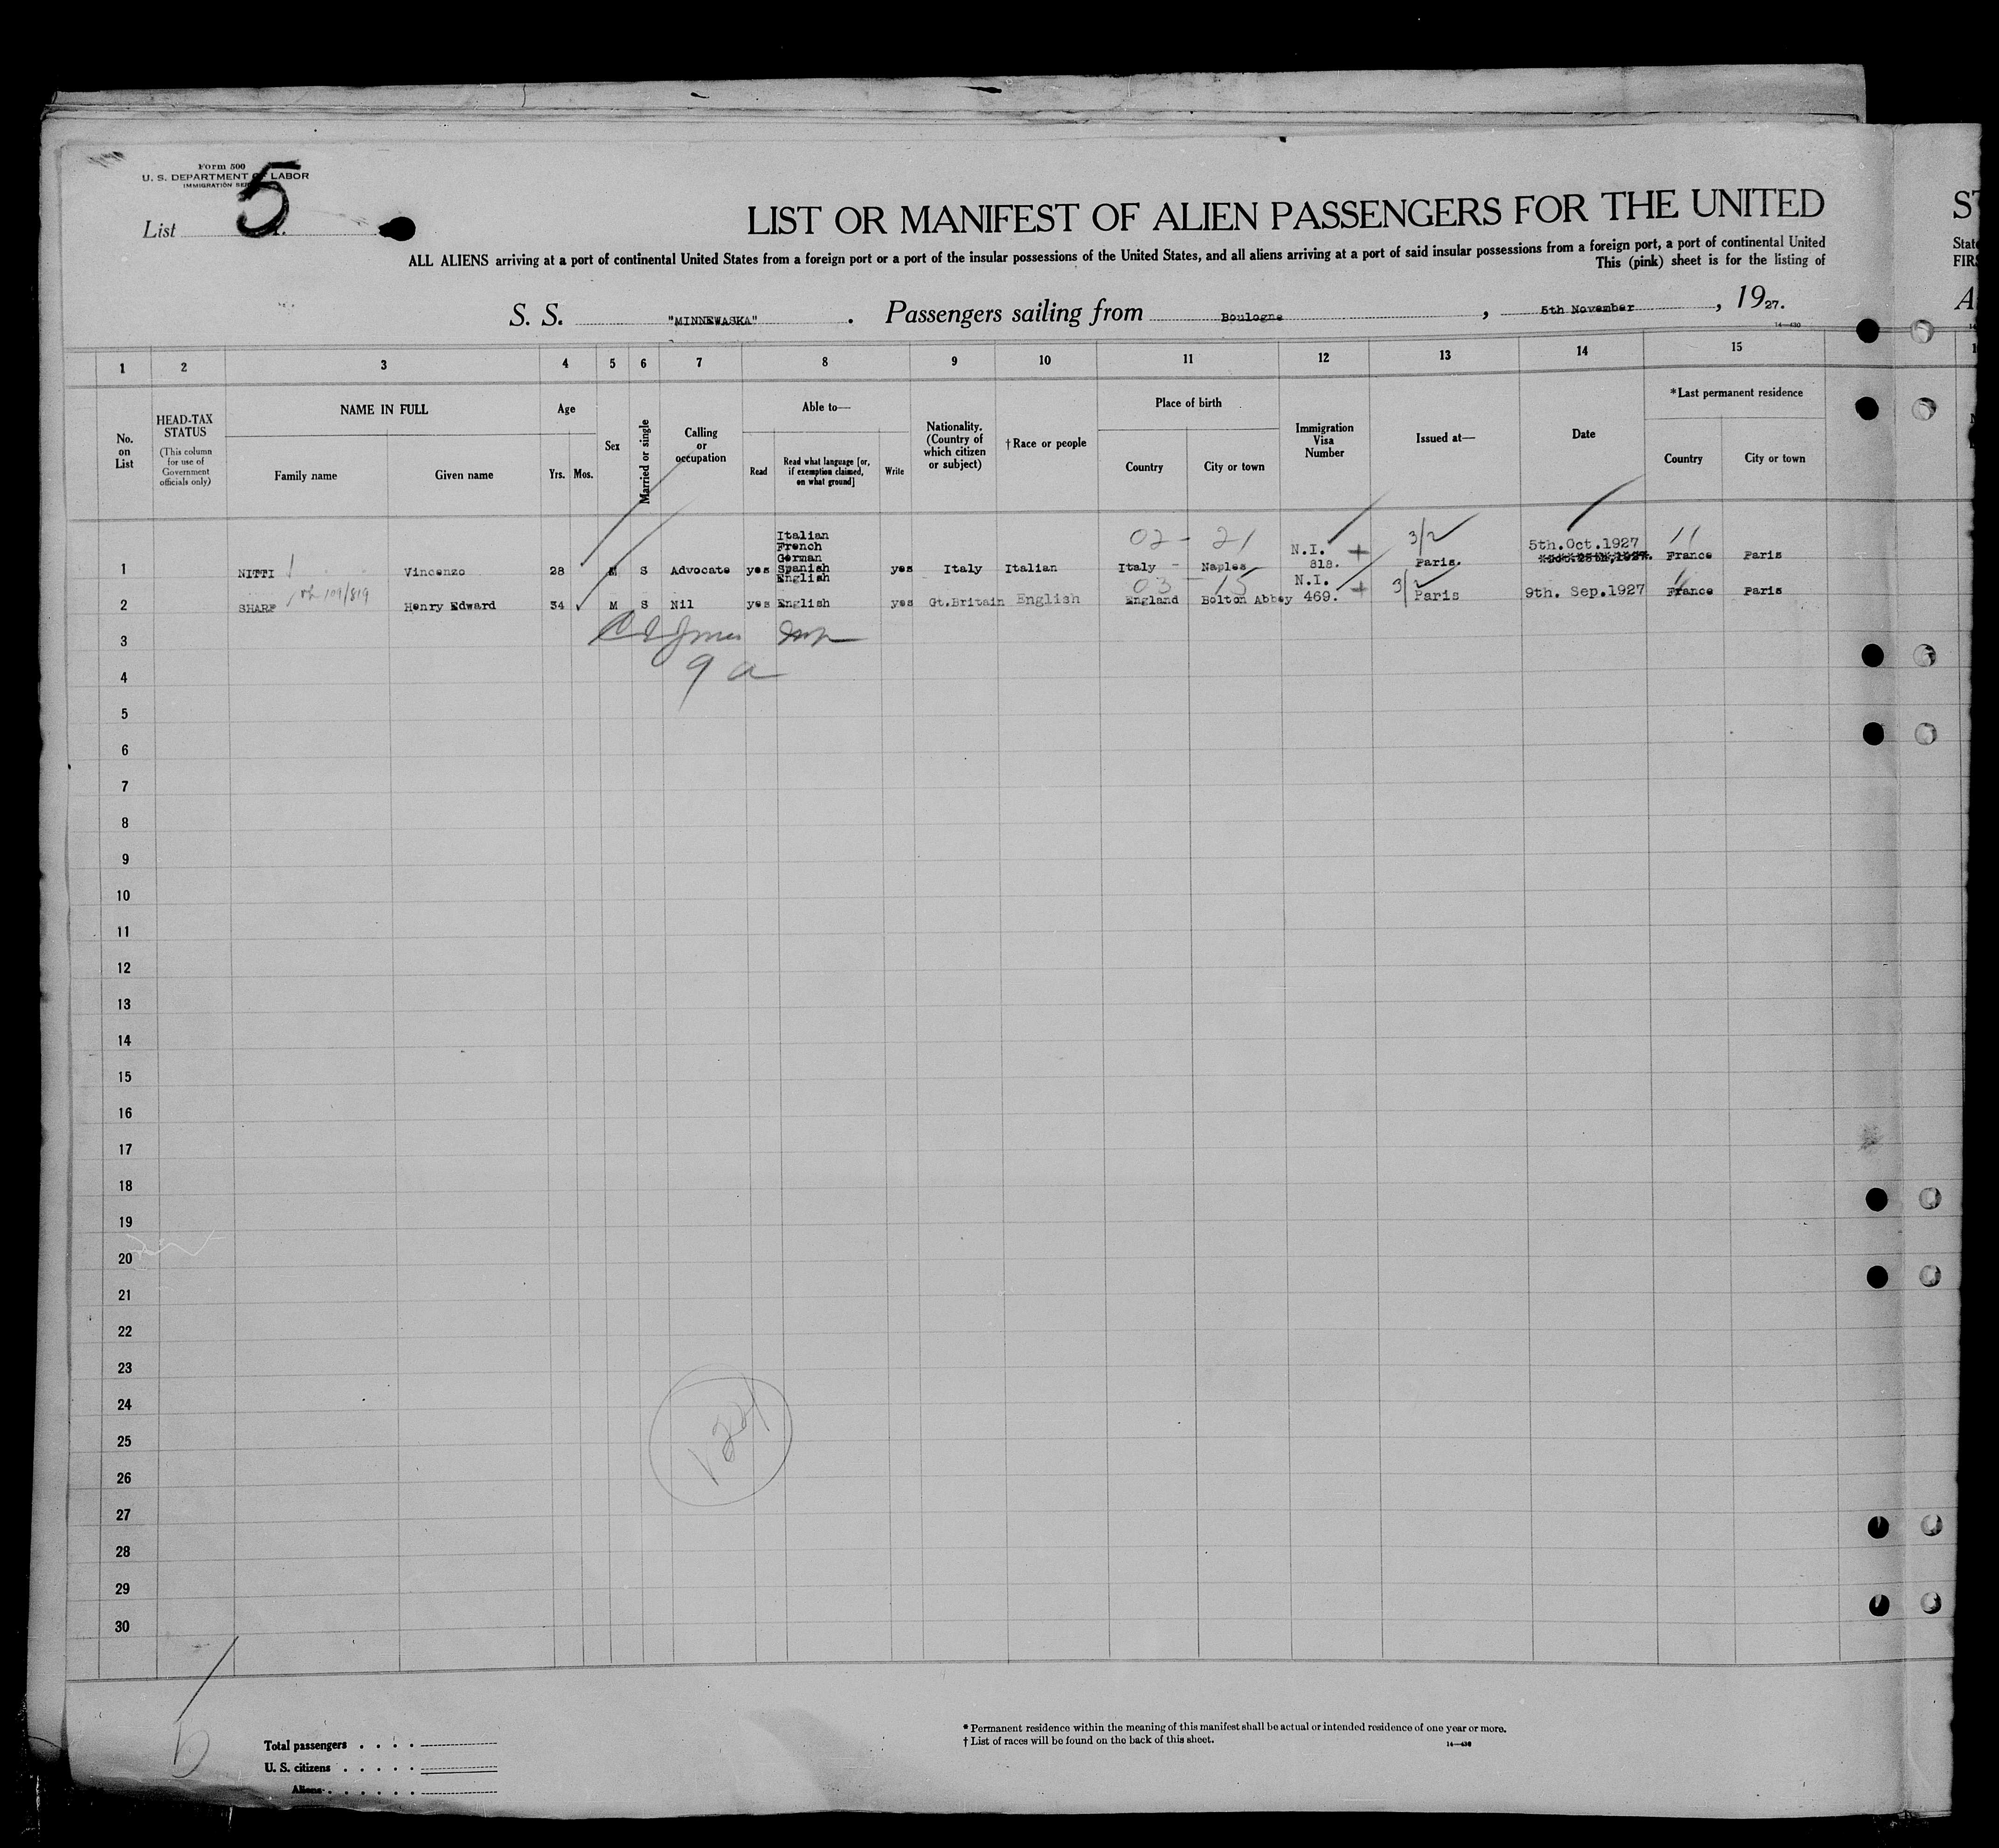 Form 500
U. S. DEPARTMENT OF LABOR
IMMIGRATION
List 5
LIST OR MANIFEST OF ALIEN PASSENGERS FOR THE UNITED
ALL ALIENS arriving at a port of continental United States from a foreign port or a port of the insular possessions of the United States, and all aliens arriving at a port of said insular possessions from a foreign port, a port of continental United
This (pink) sheet is for the listing of
State
FIRS
S. S. "MINNEWASKA". Passengers sailing from Boulogne, 5th November, 1927.
14—430
1 2 3 4 5 6 7 8 9 10 11 12 13 14 15
No. on List
HEAD-TAX STATUS
(This column for use of Government officials only)
NAME IN FULL
Family name
Given name
Age
Yrs. Mos.
Sex
Married or single
Calling or occupation
Able to—
Read
Read what language [or, if exemption claimed, on what ground]
Write
Nationality. (Country of which citizen or subject)
†Race or people
Place of birth
Country
City or town
Immigration Visa Number
Issued at—
Date
*Last permanent residence
Country
City or town
02 - 21 3/2 11
1 NITTI Vincenzo 28 M S Advocate yes Italian French German Spanish English yes Italy Italian Italy Naples N.I. 818. Paris. 5th.Oct.1927 France Paris
03 - 15 3/2
2 SHARP 109/819 Henry Edward 34 M S Nil yes English yes Gt.Britain English England Bolton Abbey N.I. 469. Paris 9th. Sep.1927 France Paris
3
4 9 a
5
6
7
8
9
10
11
12
13
14
15
16
17
18
19
20
21
22
23
24
25
26
27
28
29
30
Total passengers . . . .
U. S. citizens . . . . .
Aliens . . . . . .
* Permanent residence within the meaning of this manifest shall be actual or intended residence of one year or more.
† List of races will be found on the back of this sheet.
14—430